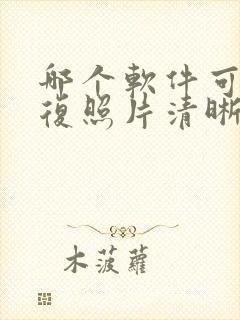 哪个軟件可
復照片清晰
木菠蘿